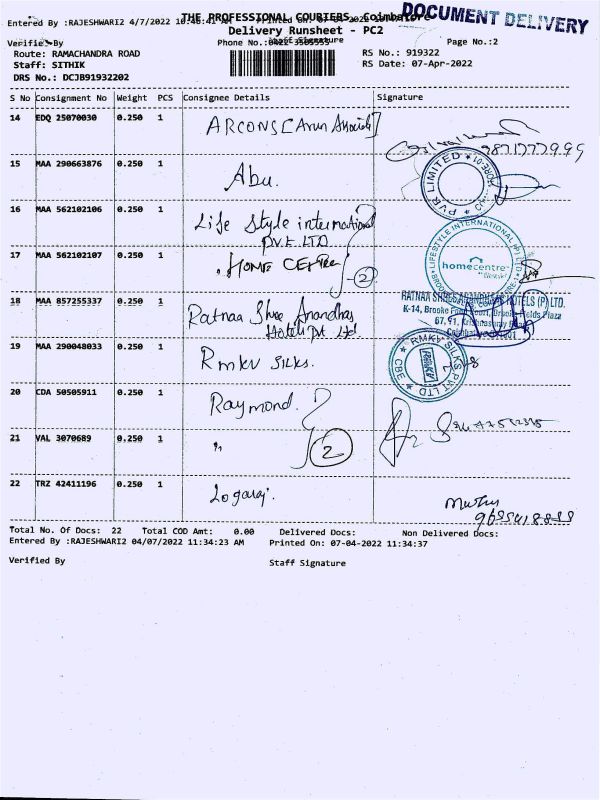 THE PROFESSIONAL COURIERS, Coimbatore
DOCUMENT DELIVERY
Entered By :RAJESHWARI2 4/7/2022
Delivery Runsheet - PC2
Verified By
Phone No.:0422 3505555
Page No.:2
Route: RAMACHANDRA ROAD
RS No.: 919322
Staff: SITHIK
RS Date: 07-Apr-2022
DRS No.: DCJB91932202
S No Consignment No Weight PCS Consignee Details Signature
14 EDQ 25070030 0.250 1 ARCONS [Arun
15 MAA 290663876 0.250 1 Abu. PVR LIMITED
16 MAA 562102106 0.250 1 Life Style international
PVT LTD
LIFESTYLE INTERNATIONAL (P) LTD.
17 MAA 562102107 0.250 1 HOME CENTRE 2 homecentre
18 MAA 857255337 0.250 1 Ratnaa Shree Anandhas
Hotels Pvt Ltd
HOTELS (P) LTD.
K-14, Brooke Fields Plaza
19 MAA 290048033 0.250 1 Rmkv SILKS. RMKV SILKS PVT LTD CBE
20 CDA 50505911 0.250 1 Raymond.
21 VAL 3070689 0.250 1 " 2
22 TRZ 42411196 0.250 1 Logaraj.
Total No. Of Docs: 22 Total COD Amt: 0.00 Delivered Docs: Non Delivered Docs:
Entered By :RAJESHWARI2 04/07/2022 11:34:23 AM Printed On: 07-04-2022 11:34:37
Verified By Staff Signature